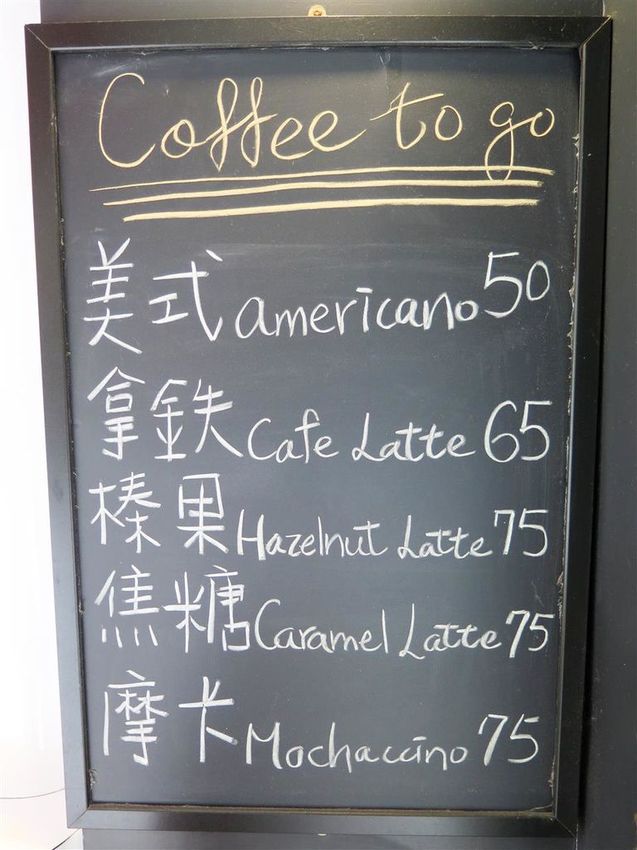 Coffee to go
美式 americano 50
拿鉄 Cafe Latte 65
榛果 Hazelnut Latte 75
焦糖 Caramel Latte 75
摩卡 Mochaccino 75